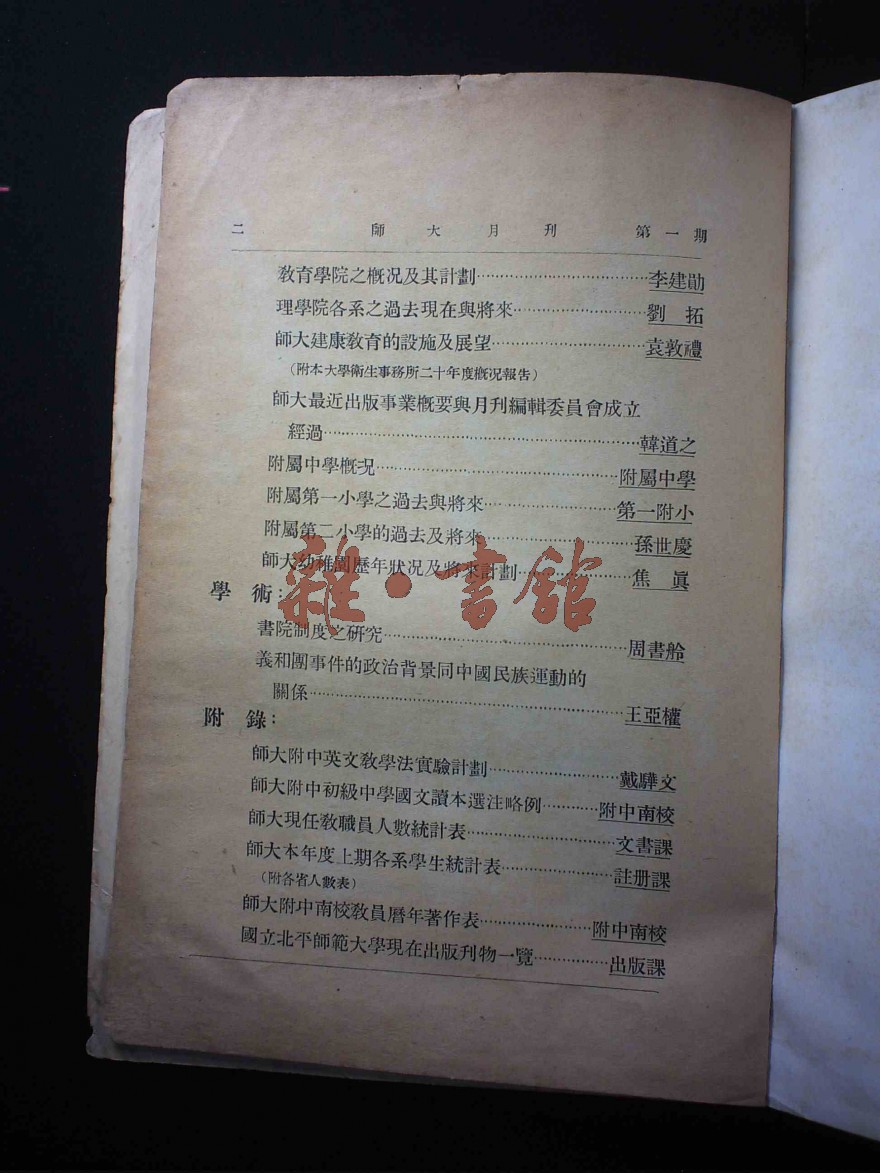 二 師大月刊 第一期
教育學院之概况及其計劃……………………李建勛
理學院各系之過去現在與將來………………劉拓
師大建康教育的設施及展望…………………袁敦禮
（附本大學衛生事務所二十年度概况報告）
師大最近出版事業概要與月刊編輯委員會成立
經過……………………………………韓道之
附屬中學概况……………………………附屬中學
附屬第一小學之過去與將來………………第一附小
附屬第二小學的過去及將來…………………孫世慶
師大幼稚園歷年狀况及將來計劃……………焦眞
學術：
書院制度之研究……………………………周書舲
義和團事件的政治背景同中國民族運動的
關係……………………………………王亞權
附錄：
師大附中英文教學法實驗計劃………………戴驊文
師大附中初級中學國文讀本選注略例…………附中南校
師大現任教職員人數統計表…………………文書課
師大本年度上期各系學生統計表………………註册課
（附各省人數表）
師大附中南校教員曆年著作表………………附中南校
國立北平師範大學現在出版刊物一覽……………出版課
雜·書館